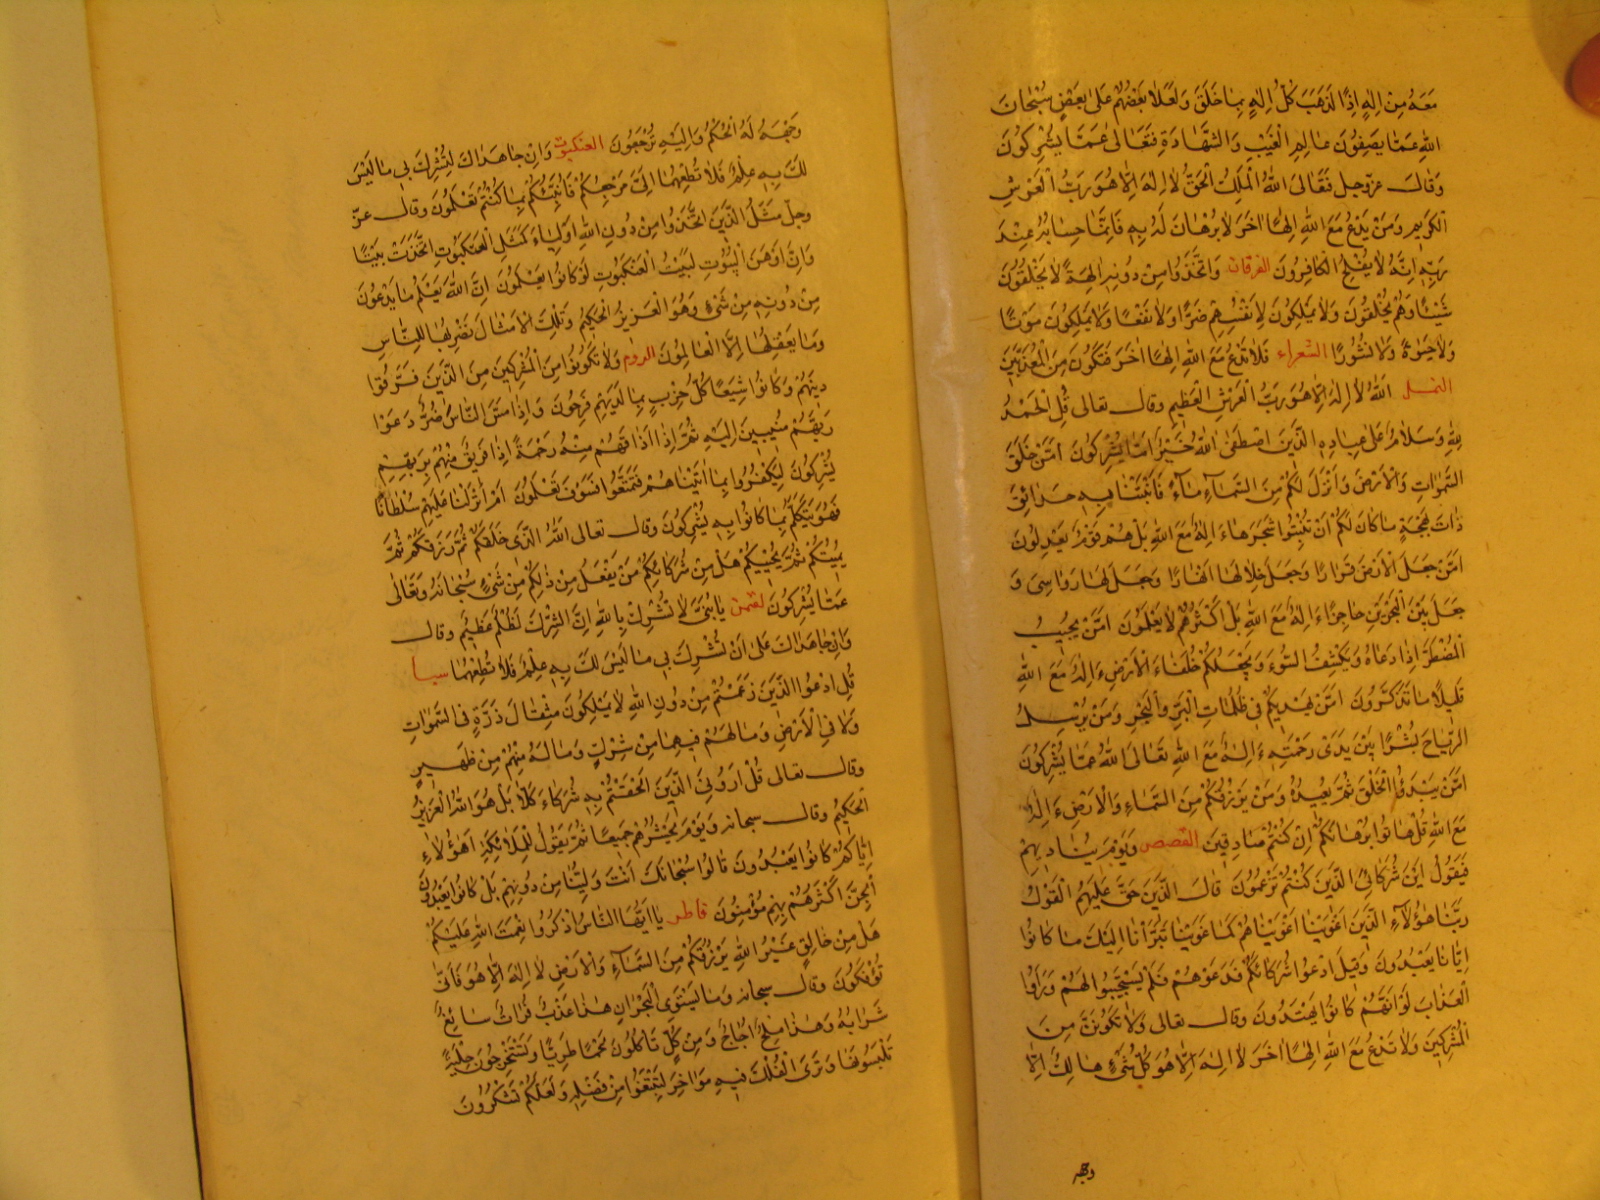 مَعَهُ مِنْ اِلٰهٍ اِذًا لَذَهَبَ كُلُّ اِلٰهٍ بِمَا خَلَقَ وَلَعَلَا بَعْضُهُمْ عَلٰى بَعْضٍ سُبْحَانَ
اللّٰهِ عَمَّا يَصِفُونَ عَالِمِ الْغَيْبِ وَالشَّهَادَةِ فَتَعَالٰى عَمَّا يُشْرِكُونَ
وَقَالَ عزّ وجل فَتَعَالَى اللّٰهُ الْمَلِكُ الْحَقُّ لَا اِلٰهَ اِلَّا هُوَ رَبُّ الْعَرْشِ
الْكَرِيمِ وَمَنْ يَدْعُ مَعَ اللّٰهِ اِلٰهًا اٰخَرَ لَا بُرْهَانَ لَهُ بِهِ فَاِنَّمَا حِسَابُهُ عِنْدَ
رَبِّهِ اِنَّهُ لَا يُفْلِحُ الْكَافِرُونَ الفرقان وَاتَّخَذُوا مِنْ دُونِهِ اٰلِهَةً لَا يَخْلُقُونَ
شَيْئًا وَهُمْ يُخْلَقُونَ وَلَا يَمْلِكُونَ لِاَنْفُسِهِمْ ضَرًّا وَلَا نَفْعًا وَلَا يَمْلِكُونَ مَوْتًا
وَلَا حَيٰوةً وَلَا نُشُورًا الشعراء فَلَا تَدْعُ مَعَ اللّٰهِ اِلٰهًا اٰخَرَ فَتَكُونَ مِنَ الْمُعَذَّبِينَ
النمل اَللّٰهُ لَا اِلٰهَ اِلَّا هُوَ رَبُّ الْعَرْشِ الْعَظِيمِ وقال تعالى قُلِ الْحَمْدُ
لِلّٰهِ وَسَلَامٌ عَلٰى عِبَادِهِ الَّذِينَ اصْطَفٰى اٰللّٰهُ خَيْرٌ اَمَّا يُشْرِكُونَ اَمَّنْ خَلَقَ
السَّمٰوَاتِ وَالْاَرْضَ وَاَنْزَلَ لَكُمْ مِنَ السَّمَاءِ مَاءً فَاَنْبَتْنَا بِهِ حَدَائِقَ
ذَاتَ بَهْجَةٍ مَا كَانَ لَكُمْ اَنْ تُنْبِتُوا شَجَرَهَا ءَاِلٰهٌ مَعَ اللّٰهِ بَلْ هُمْ قَوْمٌ يَعْدِلُونَ
اَمَّنْ جَعَلَ الْاَرْضَ قَرَارًا وَجَعَلَ خِلَالَهَا اَنْهَارًا وَجَعَلَ لَهَا رَوَاسِىَ وَ
جَعَلَ بَيْنَ الْبَحْرَيْنِ حَاجِزًا ءَاِلٰهٌ مَعَ اللّٰهِ بَلْ اَكْثَرُهُمْ لَا يَعْلَمُونَ اَمَّنْ يُجِيبُ
الْمُضْطَرَّ اِذَا دَعَاهُ وَيَكْشِفُ السُّوءَ وَيَجْعَلُكُمْ خُلَفَاءَ الْاَرْضِ ءَاِلٰهٌ مَعَ اللّٰهِ
قَلِيلًا مَا تَذَكَّرُونَ اَمَّنْ يَهْدِيكُمْ فِى ظُلُمَاتِ الْبَرِّ وَالْبَحْرِ وَمَنْ يُرْسِلُ
الرِّيَاحَ بُشْرًا بَيْنَ يَدَىْ رَحْمَتِهِ ءَاِلٰهٌ مَعَ اللّٰهِ تَعَالَى اللّٰهُ عَمَّا يُشْرِكُونَ
اَمَّنْ يَبْدَؤُا الْخَلْقَ ثُمَّ يُعِيدُهُ وَمَنْ يَرْزُقُكُمْ مِنَ السَّمَاءِ وَالْاَرْضِ ءَاِلٰهٌ
مَعَ اللّٰهِ قُلْ هَاتُوا بُرْهَانَكُمْ اِنْ كُنْتُمْ صَادِقِينَ القصص وَيَوْمَ يُنَادِيهِمْ
فَيَقُولُ اَيْنَ شُرَكَائِىَ الَّذِينَ كُنْتُمْ تَزْعُمُونَ قَالَ الَّذِينَ حَقَّ عَلَيْهِمُ الْقَوْلُ
رَبَّنَا هٰؤُلَاءِ الَّذِينَ اَغْوَيْنَا اَغْوَيْنَاهُمْ كَمَا غَوَيْنَا تَبَرَّاْنَا اِلَيْكَ مَا كَانُوا
اِيَّانَا يَعْبُدُونَ وَقِيلَ ادْعُوا شُرَكَاءَكُمْ فَدَعَوْهُمْ فَلَمْ يَسْتَجِيبُوا لَهُمْ وَرَاَوُا
الْعَذَابَ لَوْ اَنَّهُمْ كَانُوا يَهْتَدُونَ وقال تعالى وَلَا تَكُونَنَّ مِنَ
الْمُشْرِكِينَ وَلَا تَدْعُ مَعَ اللّٰهِ اِلٰهًا اٰخَرَ لَا اِلٰهَ اِلَّا هُوَ كُلُّ شَىْءٍ هَالِكٌ اِلَّا
وجهه
وَجْهَهُ لَهُ الْحُكْمُ وَاِلَيْهِ تُرْجَعُونَ العنكبوت وَاِنْ جَاهَدَاكَ لِتُشْرِكَ بِى مَا لَيْسَ
لَكَ بِهِ عِلْمٌ فَلَا تُطِعْهُمَا اِلَىَّ مَرْجِعُكُمْ فَاُنَبِّئُكُمْ بِمَا كُنْتُمْ تَعْمَلُونَ وقال عزّ
وجلّ مَثَلُ الَّذِينَ اتَّخَذُوا مِنْ دُونِ اللّٰهِ اَوْلِيَاءَ كَمَثَلِ الْعَنْكَبُوتِ اتَّخَذَتْ بَيْتًا
وَاِنَّ اَوْهَنَ الْبُيُوتِ لَبَيْتُ الْعَنْكَبُوتِ لَوْ كَانُوا يَعْلَمُونَ اِنَّ اللّٰهَ يَعْلَمُ مَا يَدْعُونَ
مِنْ دُونِهِ مِنْ شَىْءٍ وَهُوَ الْعَزِيزُ الْحَكِيمُ وَتِلْكَ الْاَمْثَالُ نَضْرِبُهَا لِلنَّاسِ
وَمَا يَعْقِلُهَا اِلَّا الْعَالِمُونَ الروم وَلَا تَكُونُوا مِنَ الْمُشْرِكِينَ مِنَ الَّذِينَ فَرَّقُوا
دِينَهُمْ وَكَانُوا شِيَعًا كُلُّ حِزْبٍ بِمَا لَدَيْهِمْ فَرِحُونَ وَاِذَا مَسَّ النَّاسَ ضُرٌّ دَعَوْا
رَبَّهُمْ مُنِيبِينَ اِلَيْهِ ثُمَّ اِذَا اَذَاقَهُمْ مِنْهُ رَحْمَةً اِذَا فَرِيقٌ مِنْهُمْ بِرَبِّهِمْ
يُشْرِكُونَ لِيَكْفُرُوا بِمَا اٰتَيْنَاهُمْ فَتَمَتَّعُوا فَسَوْفَ تَعْلَمُونَ اَمْ اَنْزَلْنَا عَلَيْهِمْ سُلْطَانًا
فَهُوَ يَتَكَلَّمُ بِمَا كَانُوا بِهِ يُشْرِكُونَ وقال تعالى اَللّٰهُ الَّذِى خَلَقَكُمْ ثُمَّ رَزَقَكُمْ ثُمَّ
يُمِيتُكُمْ ثُمَّ يُحْيِيكُمْ هَلْ مِنْ شُرَكَائِكُمْ مَنْ يَفْعَلُ مِنْ ذٰلِكُمْ مِنْ شَىْءٍ سُبْحَانَهُ وَتَعَالٰى
عَمَّا يُشْرِكُونَ لقمن يَا بُنَىَّ لَا تُشْرِكْ بِاللّٰهِ اِنَّ الشِّرْكَ لَظُلْمٌ عَظِيمٌ وقال
وَاِنْ جَاهَدَاكَ عَلٰى اَنْ تُشْرِكَ بِى مَا لَيْسَ لَكَ بِهِ عِلْمٌ فَلَا تُطِعْهُمَا سبا
قُلِ ادْعُوا الَّذِينَ زَعَمْتُمْ مِنْ دُونِ اللّٰهِ لَا يَمْلِكُونَ مِثْقَالَ ذَرَّةٍ فِى السَّمٰوَاتِ
وَلَا فِى الْاَرْضِ وَمَا لَهُمْ فِيهِمَا مِنْ شِرْكٍ وَمَا لَهُ مِنْهُمْ مِنْ ظَهِيرٍ
وقال تعالى قُلْ اَرُونِىَ الَّذِينَ اَلْحَقْتُمْ بِهِ شُرَكَاءَ كَلَّا بَلْ هُوَ اللّٰهُ الْعَزِيزُ
الْحَكِيمُ وقال سبحانه وَيَوْمَ يَحْشُرُهُمْ جَمِيعًا ثُمَّ يَقُولُ لِلْمَلٰئِكَةِ اَهٰؤُلَاءِ
اِيَّاكُمْ كَانُوا يَعْبُدُونَ قَالُوا سُبْحَانَكَ اَنْتَ وَلِيُّنَا مِنْ دُونِهِمْ بَلْ كَانُوا يَعْبُدُونَ
الْجِنَّ اَكْثَرُهُمْ بِهِمْ مُؤْمِنُونَ فاطر يَا اَيُّهَا النَّاسُ اذْكُرُوا نِعْمَتَ اللّٰهِ عَلَيْكُمْ
هَلْ مِنْ خَالِقٍ غَيْرُ اللّٰهِ يَرْزُقُكُمْ مِنَ السَّمَاءِ وَالْاَرْضِ لَا اِلٰهَ اِلَّا هُوَ فَاَنّٰى
تُؤْفَكُونَ وقال سبحانه وَمَا يَسْتَوِى الْبَحْرَانِ هٰذَا عَذْبٌ فُرَاتٌ سَائِغٌ
شَرَابُهُ وَهٰذَا مِلْحٌ اُجَاجٌ وَمِنْ كُلٍّ تَاْكُلُونَ لَحْمًا طَرِيًّا وَتَسْتَخْرِجُونَ حِلْيَةً
تَلْبَسُونَهَا وَتَرَى الْفُلْكَ فِيهِ مَوَاخِرَ لِتَبْتَغُوا مِنْ فَضْلِهِ وَلَعَلَّكُمْ تَشْكُرُونَ